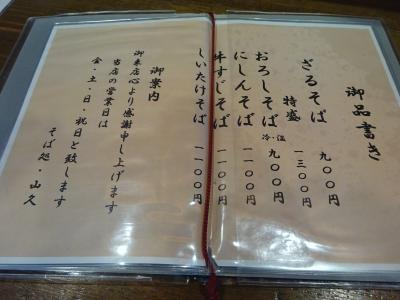 御品書き
ざるそば 九〇〇円
特盛 一三〇〇円
おろしそば 冷・温 九〇〇円
にしんそば 一一〇〇円
牛すじそば 一一〇〇円
しいたけそば 一一〇〇円
御案内
御来店心より感謝申し上げます
当店の営業日は
金・土・日・祝日と致します
そば処・山久